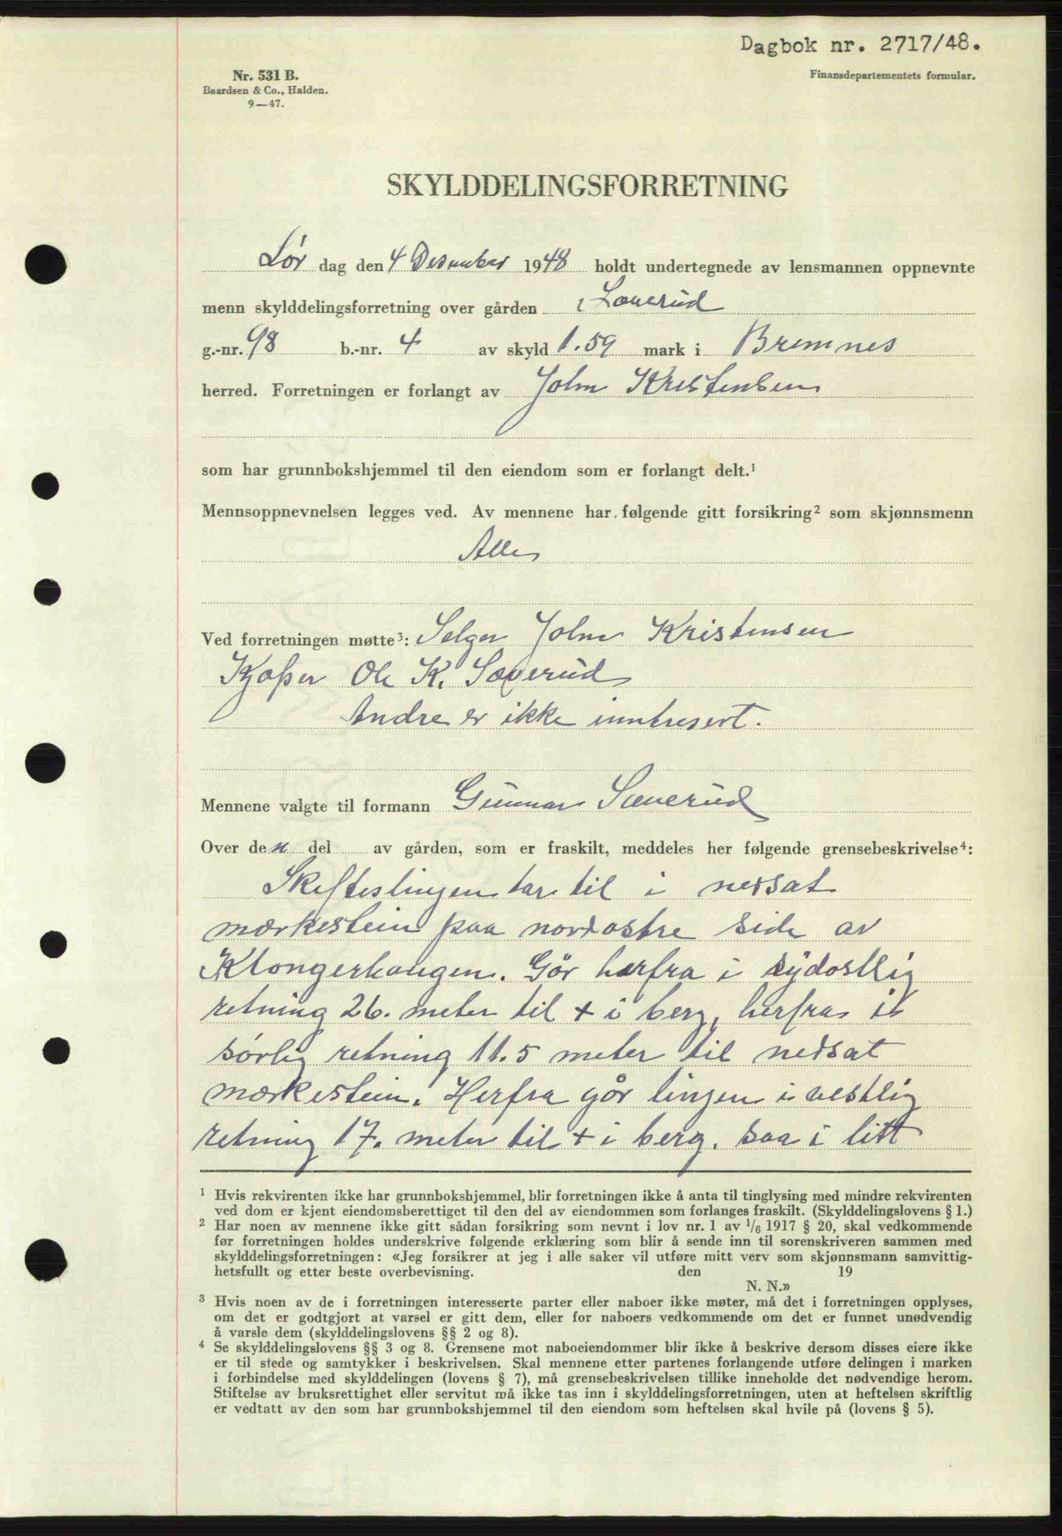 Dagbok nr. 2717/48.
Nr. 531 B.
Baardsen & Co., Halden.
9—47.
Finansdepartementets formular.
SKYLDDELINGSFORRETNING
Lør dag den 4 Desember 1948 holdt undertegnede av lensmannen oppnevnte
menn skylddelingsforretning over gården Sæverud
g.-nr. 98 b.-nr. 4 av skyld 1.59 mark i Bremnes
herred. Forretningen er forlangt av John Kristensen
som har grunnbokshjemmel til den eiendom som er forlangt delt.¹
Mennsoppnevnelsen legges ved. Av mennene har følgende gitt forsikring² som skjønnsmenn
Alle
Ved forretningen møtte³: Selger John Kristensen
Kjøper Ole K. Sæverud
Andre er ikke inntresert.
Mennene valgte til formann Gunnar Sæverud
Over den del av gården, som er fraskilt, meddeles her følgende grensebeskrivelse⁴:
Skifteslinjen tar til i nedsat
mærkestein paa nordøstre side av
Klongerhaugen. Går herfra i sydøstlig
retning 26. meter til + i berg, herfra i
sørlig retning 11.5 meter til nedsat
mærkestein. Herfra går linjen i vestlig
retning 17. meter til + i berg. saa i litt
¹ Hvis rekvirenten ikke har grunnbokshjemmel, blir forretningen ikke å anta til tinglysing med mindre rekvirenten
ved dom er kjent eiendomsberettiget til den del av eiendommen som forlanges fraskilt. (Skylddelingslovens § 1.)
² Har noen av mennene ikke gitt sådan forsikring som nevnt i lov nr. 1 av 1/6 1917 § 20, skal vedkommende
før forretningen holdes underskrive følgende erklæring som blir å sende inn til sorenskriveren sammen med
skylddelingsforretningen: «Jeg forsikrer at jeg i alle saker vil utføre mitt verv som skjønnsmann samvittig-
hetsfullt og etter beste overbevisning. den 19
N. N.»
³ Hvis noen av de i forretningen interesserte parter eller naboer ikke møter, må det i forretningen opplyses,
om det er godtgjort at varsel er gitt dem, eller for naboers vedkommende om det er funnet unødvendig
å varsle dem (skylddelingslovens §§ 2 og 8).
⁴ Se skylddelingslovens §§ 3 og 8. Grensene mot naboeiendommer blir ikke å beskrive dersom disses eiere ikke
er til stede og samtykker i beskrivelsen. Skal mennene etter partenes forlangende utføre delingen i marken
i forbindelse med skylddelingen (lovens § 7), må grensebeskrivelsen tillike inneholde det nødvendige herom.
Stiftelse av bruksrettighet eller servitut må ikke tas inn i skylddelingsforretningen, uten at heftelsen skriftlig
er vedtatt av den som har grunnbokshjemmel til den eiendom som heftelsen skal hvile på (lovens § 5).